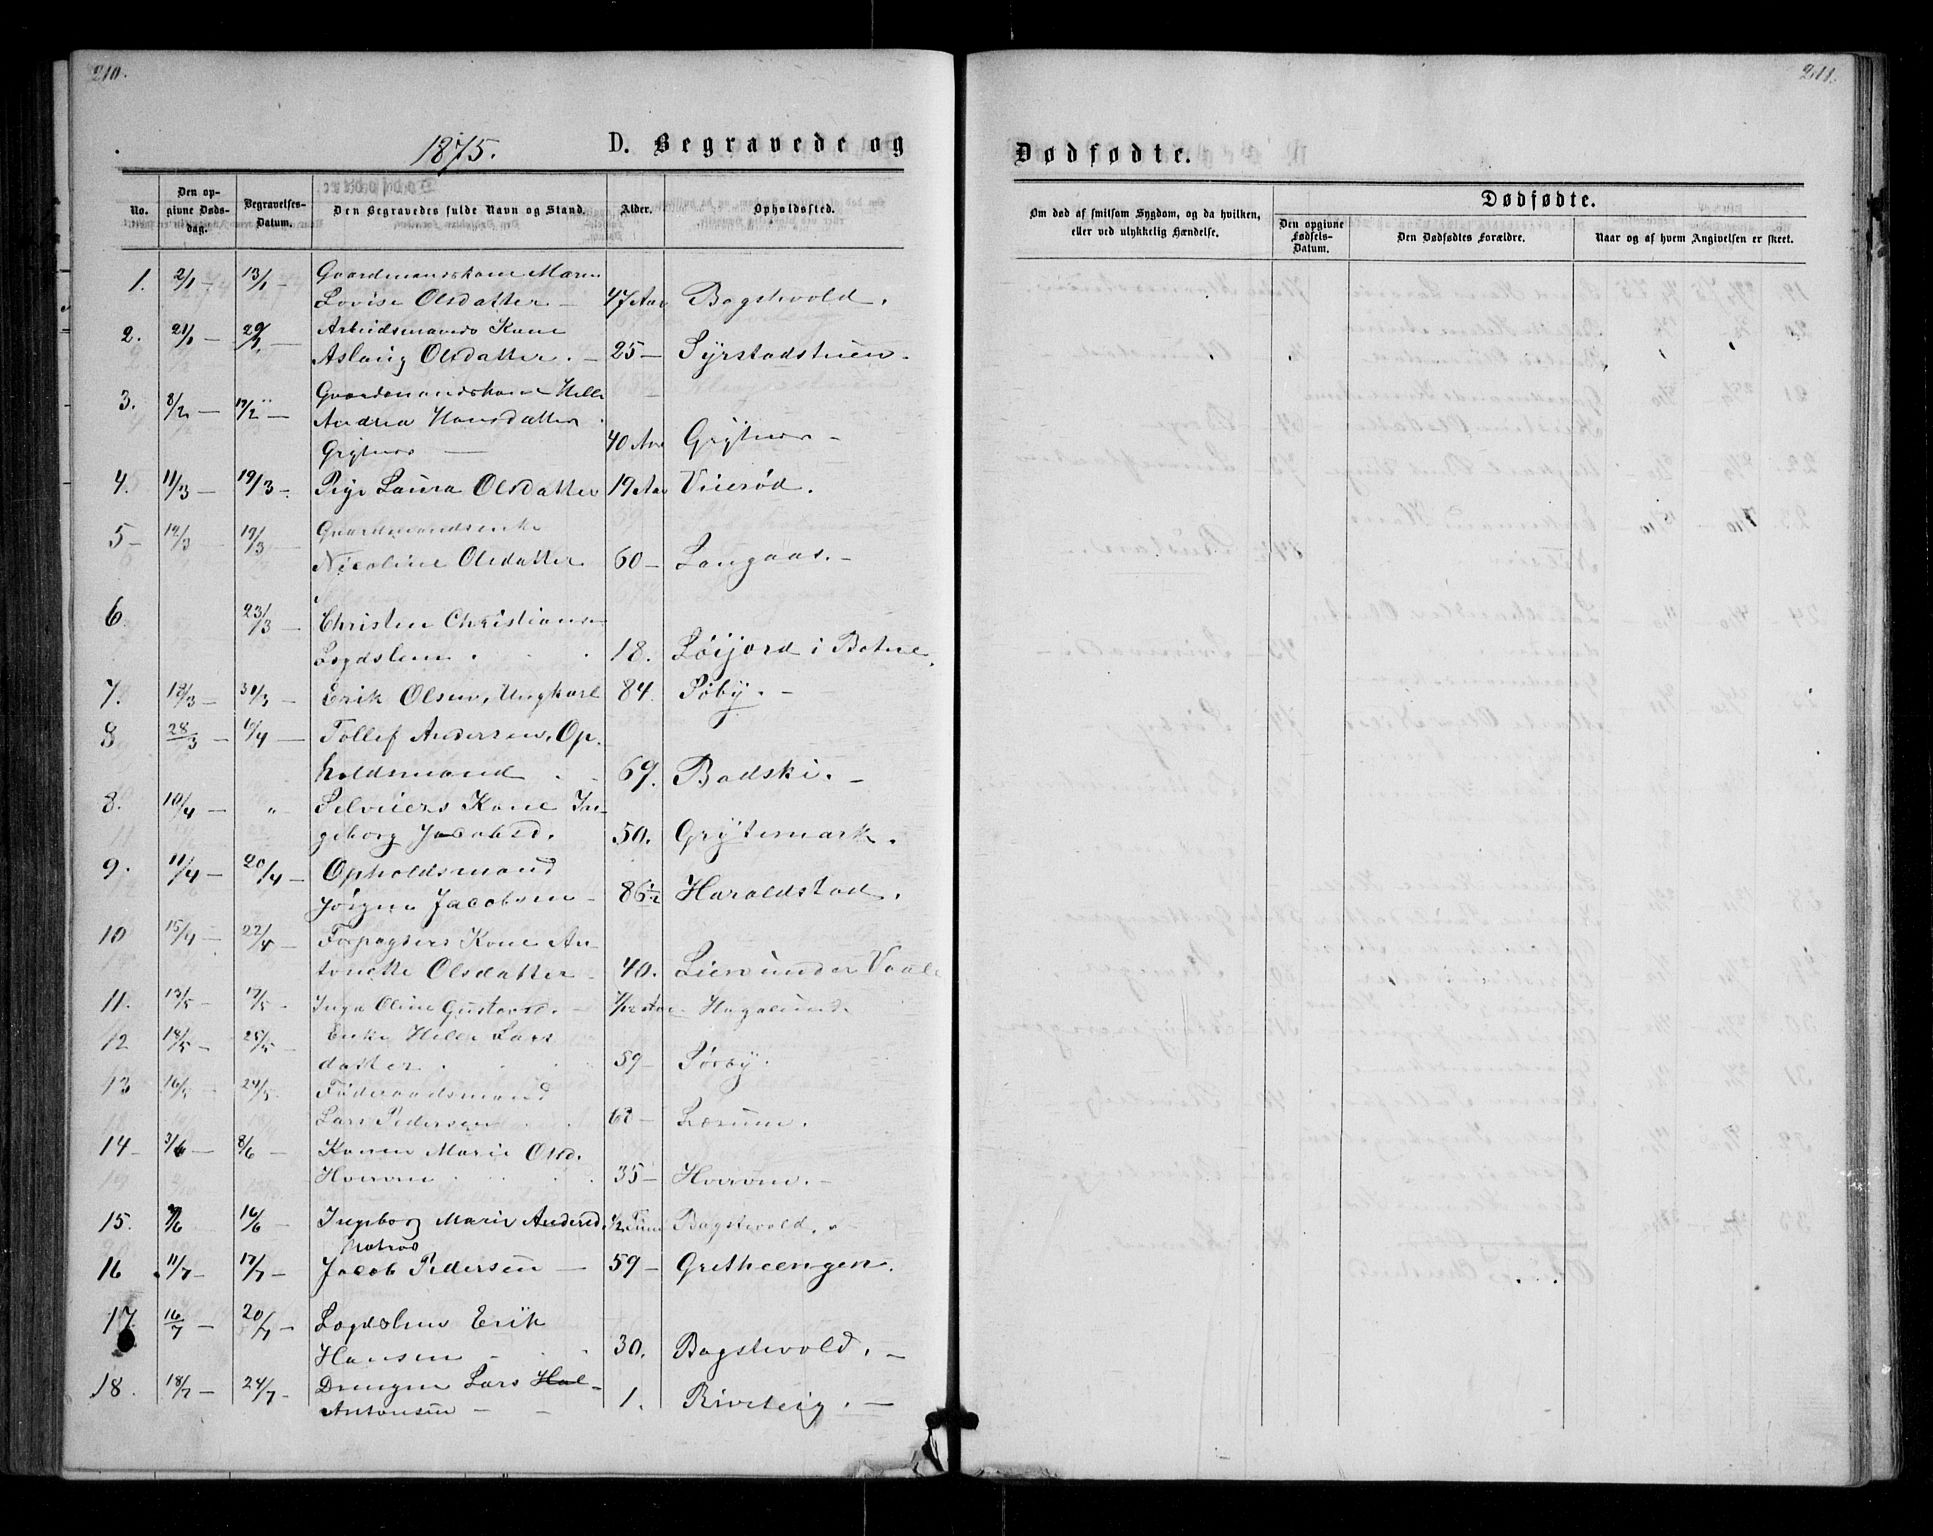 210.
1875.
D. Begravede og
No.
Den op-
givne Døds-
dag.
Begravelses-
Datum.
Den Begravedes fulde Navn og Stand.
Alder.
Opholdssted.
1. 2/1 13/1 Gaardmandskone Maren
Lovise Olsdatter 47 Aar Bogstvold.
2. 21/1 — 29/1 — Arbeidsmands Kone
Aslaug Olsdatter. — 25 — Syrstadstuen.
3. 8/2 — 17/2 — Gaardmandskone Helle
Andrea Hansdatter
Grytnes — 40 Aar Grytnes —
4. 11/3 — 19/3 —. Pige Laura Olsdatter 19 Aar Vierød.
5 — 14/3 — 19/3 — Gaardmandsenke
Nicoline Olsdatter 60 — Langaas. —
6. 23/3 — Christen Christians
Logdslem 18. Løijord i Botne.
7. 18/3 — 31/3 — Erik Olsen, Ungkarl 84. Søby. —
8 28/3 — 6/4 — Tollef Andersen, Op.
holdsmand 69. Badski. —
8. 10/4 — " Selveiers Kone In-
geborg Jacobsd. 50. Grytemark.
9. 11/4 — 20/4 — Opholdsmand
Jørgen Jacobsen — 86 1/2 Haraldstad.
10 15/4 — 22/4 — Forpagters Kone An-
tonette Olsdatter — 40. Lien under Vaale
11. 13/5 — 17/5 — Inga Oline Gustavsd. — 7/12 Aar — Hagalund.
12 18/5 — 25/5 — Enke Helle Lars
datter 59 — Sørby.
13 16/5 — 24/5. Føderaadsmand
Lars Pedersen 60 — Lærum.
14 — 3/6 — 8/6 Konen Marie Olsd.
Hverven 35 — Hverven. —
15. 9/6 16/6 — Ingeborg Marie Andersd. 1/2 Time Bogstvold. —
Matros
16 11/7 — 17/7 — Jacob Pedersen — 59 — Gretheengen.
17. 16/7 — 20/7 — Logdslem Erik
Hansen — 30. Bogstvold. —
18. 18/7 — 24/7 — Drengen Lars Hal-
Antonsen — — 1. Riveteig. —
211.
Dødfødte.
Om død af smitsom Sygdom, og da hvilken,
eller ved ulykkelig Hændelse.
Dødfødte.
Den opgivne
Fødsels-
Datum.
Den Dødfødtes Forældre.
Naar og af hvem Angivelsen er skeet.